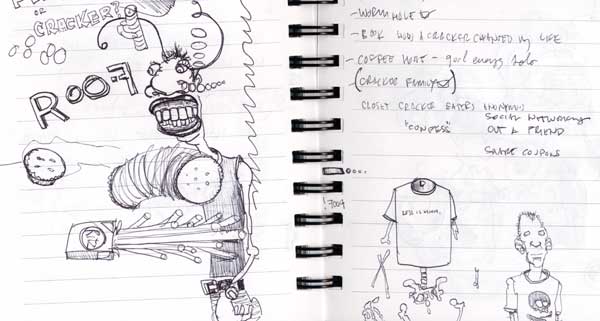 OR
CRACKER?
ROOF
- WORM HOLE
- BOOK HOW A CRACKER CHANGED MY LIFE
- COFFEE WAR - girl energy
(CRACKER FAMILY)
CLOSET CRACKER EATERS ANONYMOUS
SOCIAL NETWORKING
"CONFESS" OUT A FRIEND
SHARE COUPONS
LESS IS MORE.